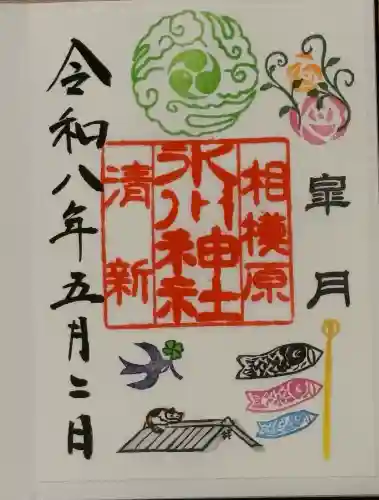 皐月
相模原
氷川神社
清新
令和八年五月二日